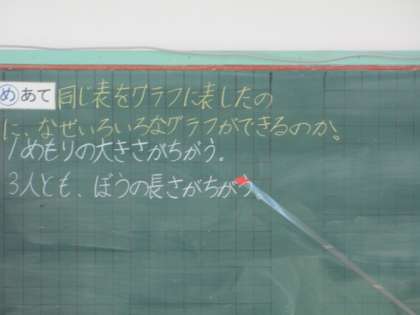 めあて 同じ表をグラフに表したの
に、なぜいろいろなグラフができるのか。
1めもりの大きさがちがう。
3人とも、ぼうの長さがちがう